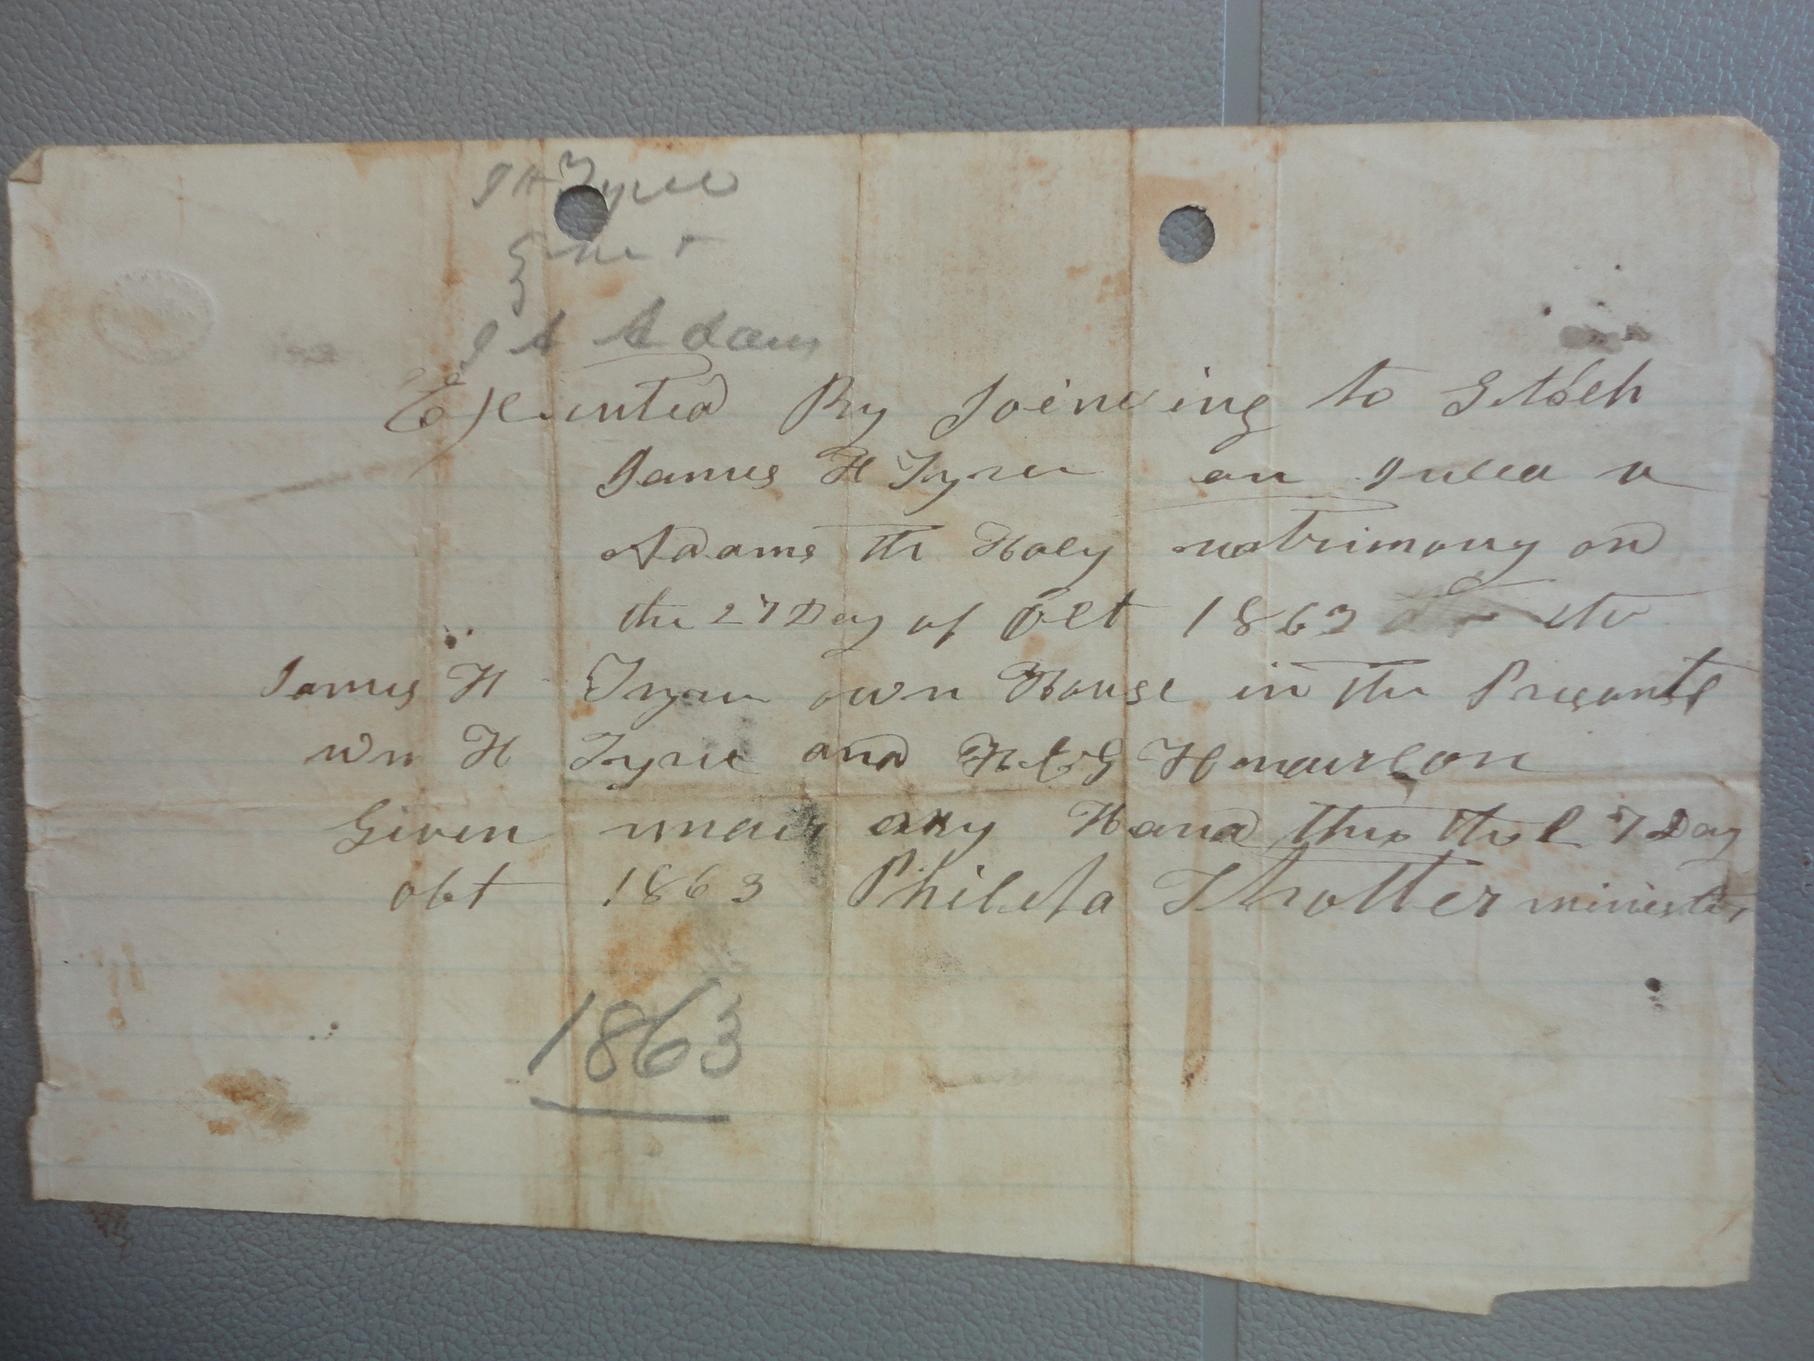 J H Tyree
J A Adams
Executed By Joineing to Geteh
James H Tyree an Julea A
Adams the Holy matrimony on
the 27 Day of Oct 1863 the
James H Tyree own House in the Presants
Wm H Tyree and
Given under my Hand this the 27 Day
Oct 1863 Phileta Trotter minister
1863